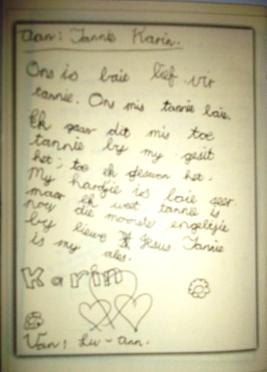 Aan: Tannie Karin.
Ons is baie lief vir
tannie. Ons mis tannie baie.
Ek gaan dit mis toe
tannie by my gesit
het, toe ek geswem het.
My hardjie is baie seer
maar ek weet tannie is
nog die mooiste engeltjie
by liewe Jesus Tannie
is my alles.
Karin
Van: Liv-ann.